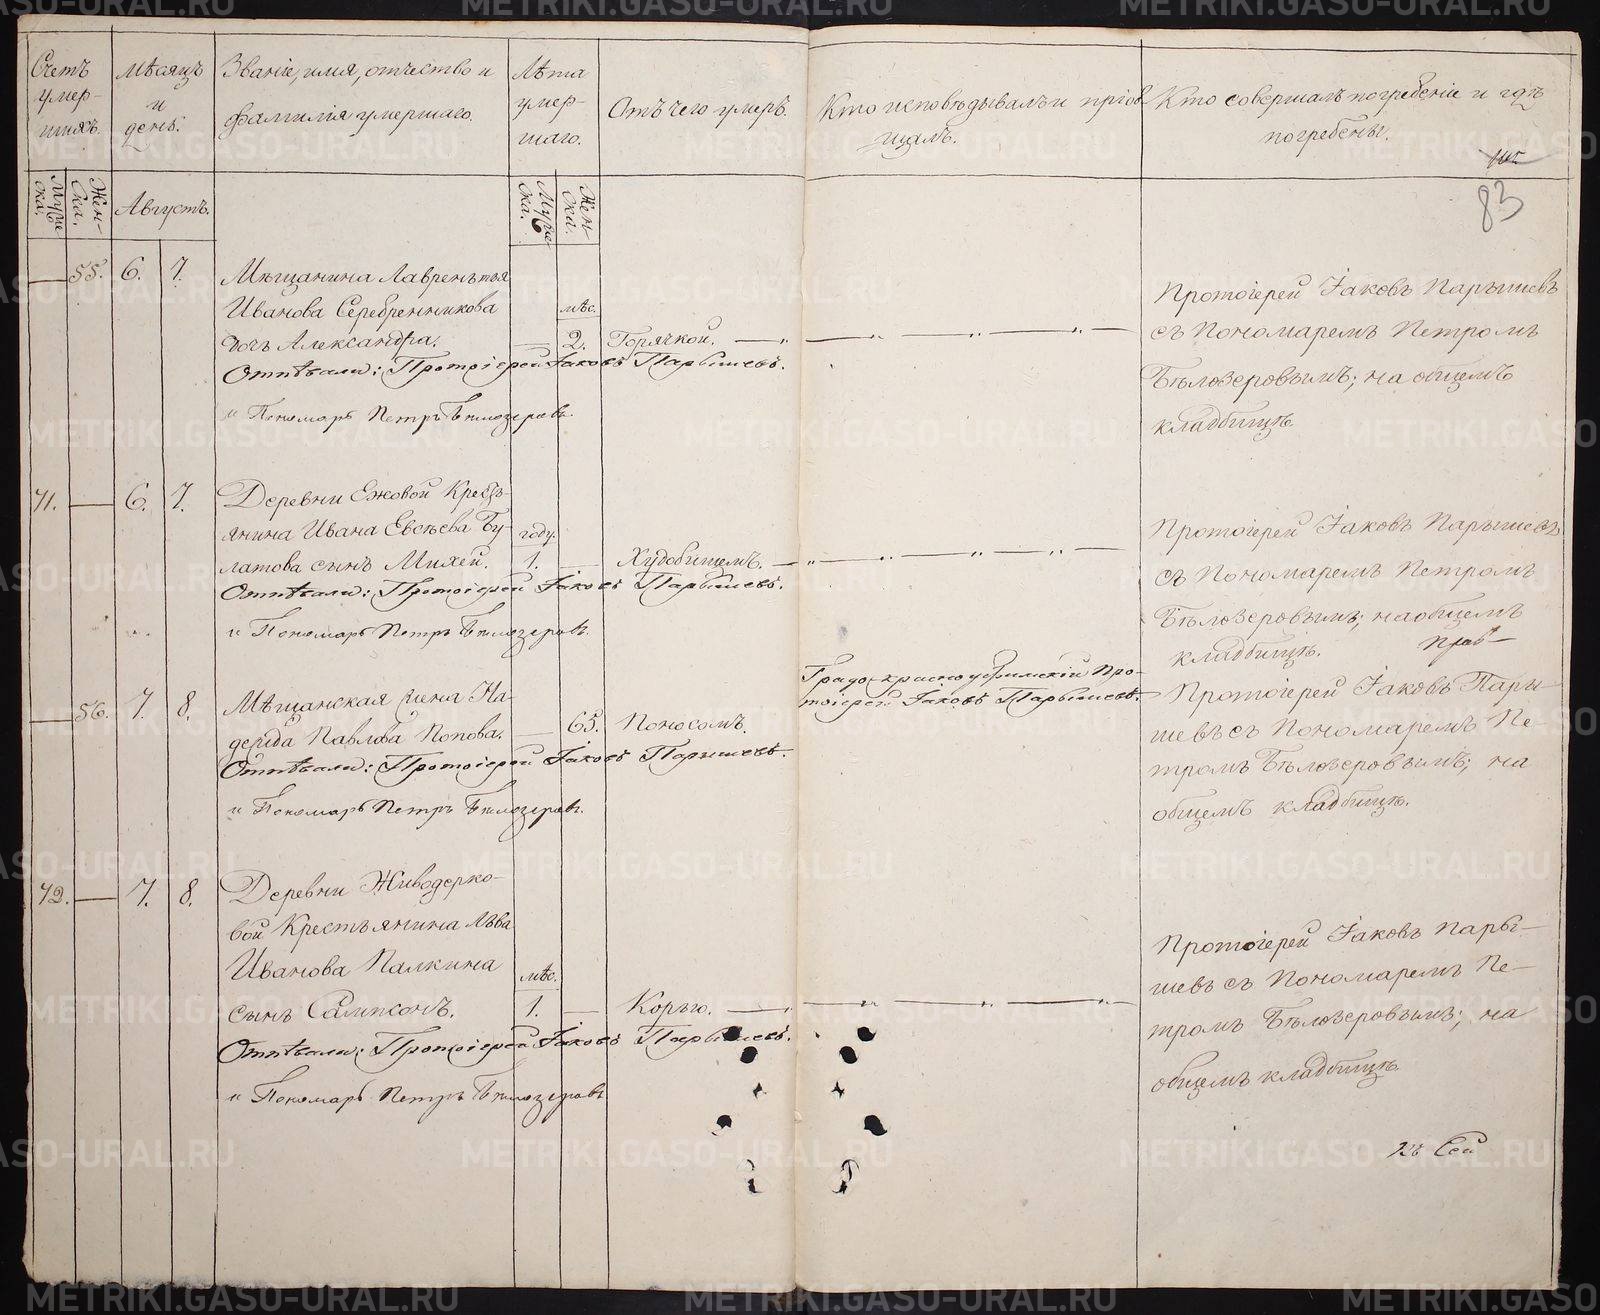 Счетъ умер-шихъ.
Мѣсяцъ и день.
Званіе, имя, отчество и фамилія умершаго.
Лѣта умер-шаго.
Отъ чего умеръ.
Кто исповѣдывалъ и пріоб-щалъ.
Кто совершалъ погребеніе и гдѣ погребены.
83
Муже ска.
Жен-ска.
Августъ.
Муже ска.
Жен-ски.
— 55. 6. 7.
Мѣщанина Лаврентья
Иванова Серебренникова
мѣс.
дочь Александра. — 2. Горячкой.
Отпѣвали: Протоіерей Іаковъ Парышевъ.
и Пономарь Петръ Бѣлозеровъ.
Протоіерей Іаковъ Парышевъ
съ Пономаремъ Петромъ
Бѣлозеровымъ; на общемъ
кладбищѣ.
71. — 6. 7.
Деревни Ежовой Кресть-
янина Ивана Евсѣева Бу-
году.
латова сынъ Михей. 1. — Худобищемъ.
Отпѣвали: Протоіерей Іаковъ Парышевъ.
и Пономарь Петръ Бѣлозеровъ.
Протоіерей Іаковъ Парышевъ
съ Пономаремъ Петромъ
Бѣлозеровымъ; на общемъ
кладбищѣ.
— 56. 7. 8.
Мѣщанская жена На-
дежда Павлова Попова. — 65. Поносомъ.
Отпѣвали: Протоіерей Іаковъ Парышевъ.
и Пономарь Петръ Бѣлозеровъ.
Градо-красноуфимскій Про-
тоіерей Іаковъ Парышевъ.
Протоіерей Іаковъ Пары-
шевъ съ Пономаремъ Пе-
тромъ Бѣлозеровымъ; на
общемъ кладбищѣ.
72. — 7. 8.
Деревни Живодерко-
вой Крестьянина Льва
Иванова Палкина
мѣс.
сынъ Сампсонъ. 1. — Корью.
Отпѣвали: Протоіерей Іаковъ Парышевъ.
и Пономарь Петръ Бѣлозеровъ
Протоіерей Іаковъ Пары-
шевъ съ Пономаремъ Пе-
тромъ Бѣлозеровымъ; на
общемъ кладбищѣ
Къ Сей
METRIKI.GASO-URAL.RU